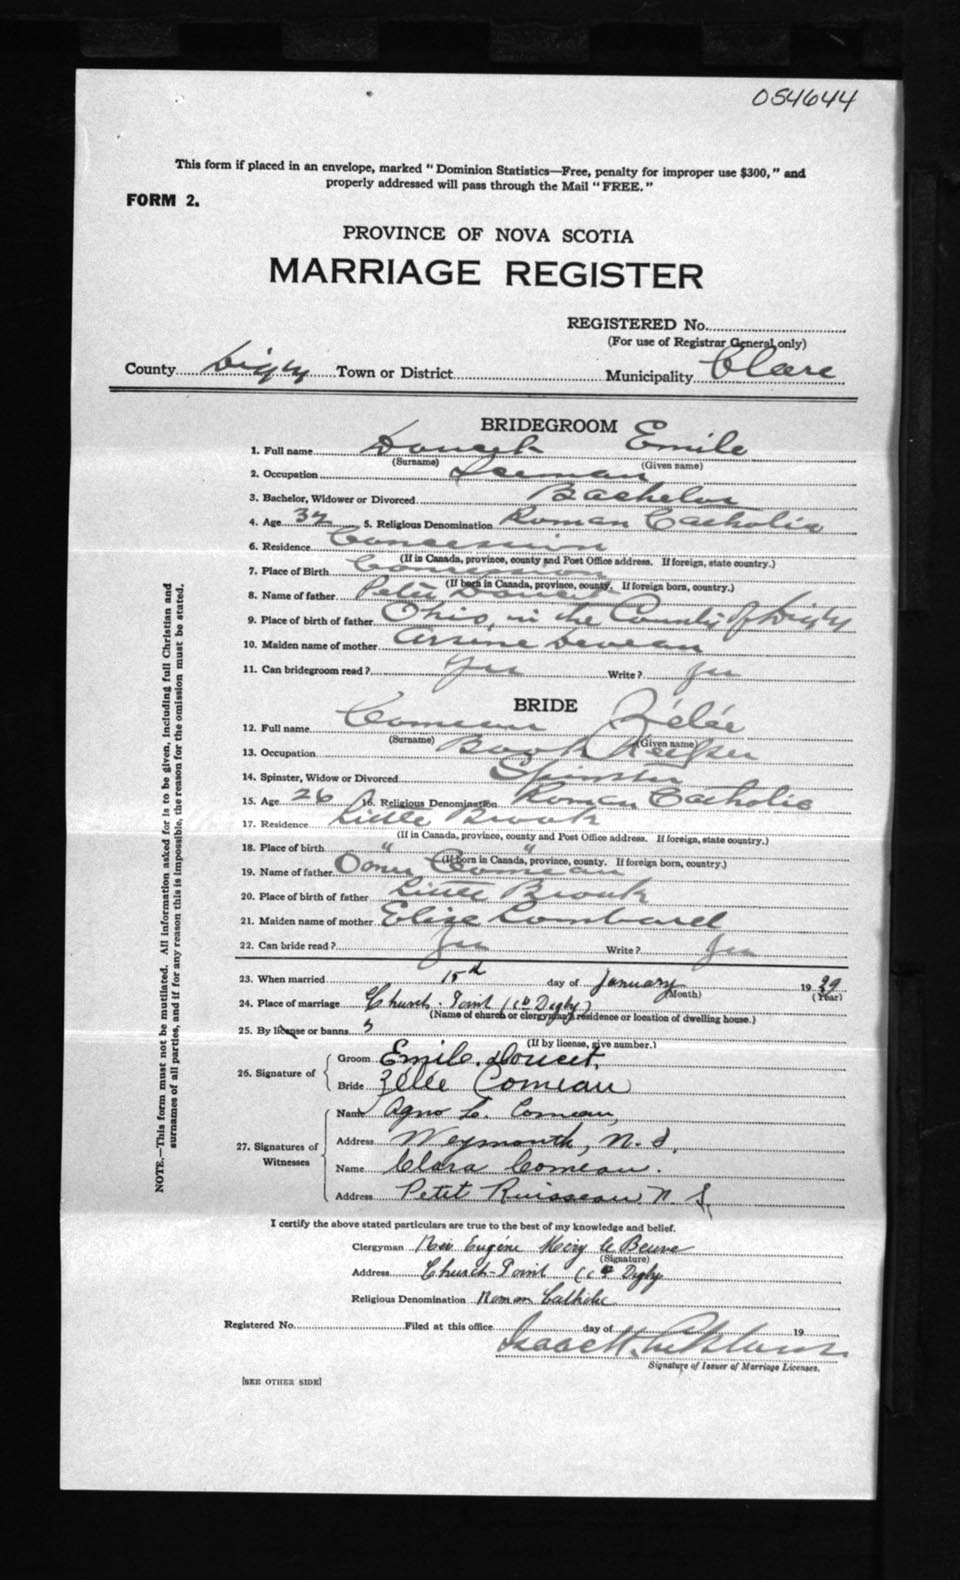 054644
This form if placed in an envelope, marked "Dominion Statistics—Free, penalty for improper use $300," and
properly addressed will pass through the Mail "FREE."
FORM 2.
PROVINCE OF NOVA SCOTIA
MARRIAGE REGISTER
REGISTERED No.
(For use of Registrar General only)
County Digby Town or District Municipality Clare
BRIDEGROOM
1. Full name Doucet Emile
(Surname) (Given name)
2. Occupation Seaman
3. Bachelor, Widower or Divorced Bachelor
4. Age 32 5. Religious Denomination Roman Catholic
6. Residence Concession
(If in Canada, province, county and Post Office address. If foreign, state country.)
7. Place of Birth Concession
(If born in Canada, province, county. If foreign born, country.)
8. Name of father Peter Doucet
9. Place of birth of father Ohio, in the County of Digby
10. Maiden name of mother Arsine Deveau
11. Can bridegroom read? Yes Write? Yes
BRIDE
12. Full name Comeau Zélée
(Surname) (Given name)
13. Occupation Book Keeper
14. Spinster, Widow or Divorced Spinster
15. Age 26 16. Religious Denomination Roman Catholic
17. Residence Little Brook
(If in Canada, province, county and Post Office address. If foreign, state country.)
18. Place of birth " "
(If born in Canada, province, county. If foreign born, country.)
19. Name of father Comeau
20. Place of birth of father Little Brook
21. Maiden name of mother Elize Lombard
22. Can bride read? Yes Write? Yes
23. When married 15d day of January 1939
(Month) (Year)
24. Place of marriage Church-Point (Co Digby)
(Name of church or clergyman's residence or location of dwelling house.)
25. By license or banns 3
(If by license, give number.)
26. Signature of
Groom Emile Doucet.
Bride Zélée Comeau
27. Signatures of Witnesses
Name Agno L. Comeau,
Address Weymouth, N. S.
Name Clara Comeau.
Address Petit Ruisseau N. S.
I certify the above stated particulars are true to the best of my knowledge and belief.
Clergyman Rev Eugène Mary Le Beuve
(Signature)
Address Church-Point (Co Digby
Religious Denomination Roman Catholic
Registered No. Filed at this office day of 19
Signature of Issuer of Marriage Licenses.
[SEE OTHER SIDE]
NOTE.—This form must not be mutilated. All information asked for is to be given, including full Christian and
surnames of all parties, and if for any reason this is impossible, the reason for the omission must be stated.